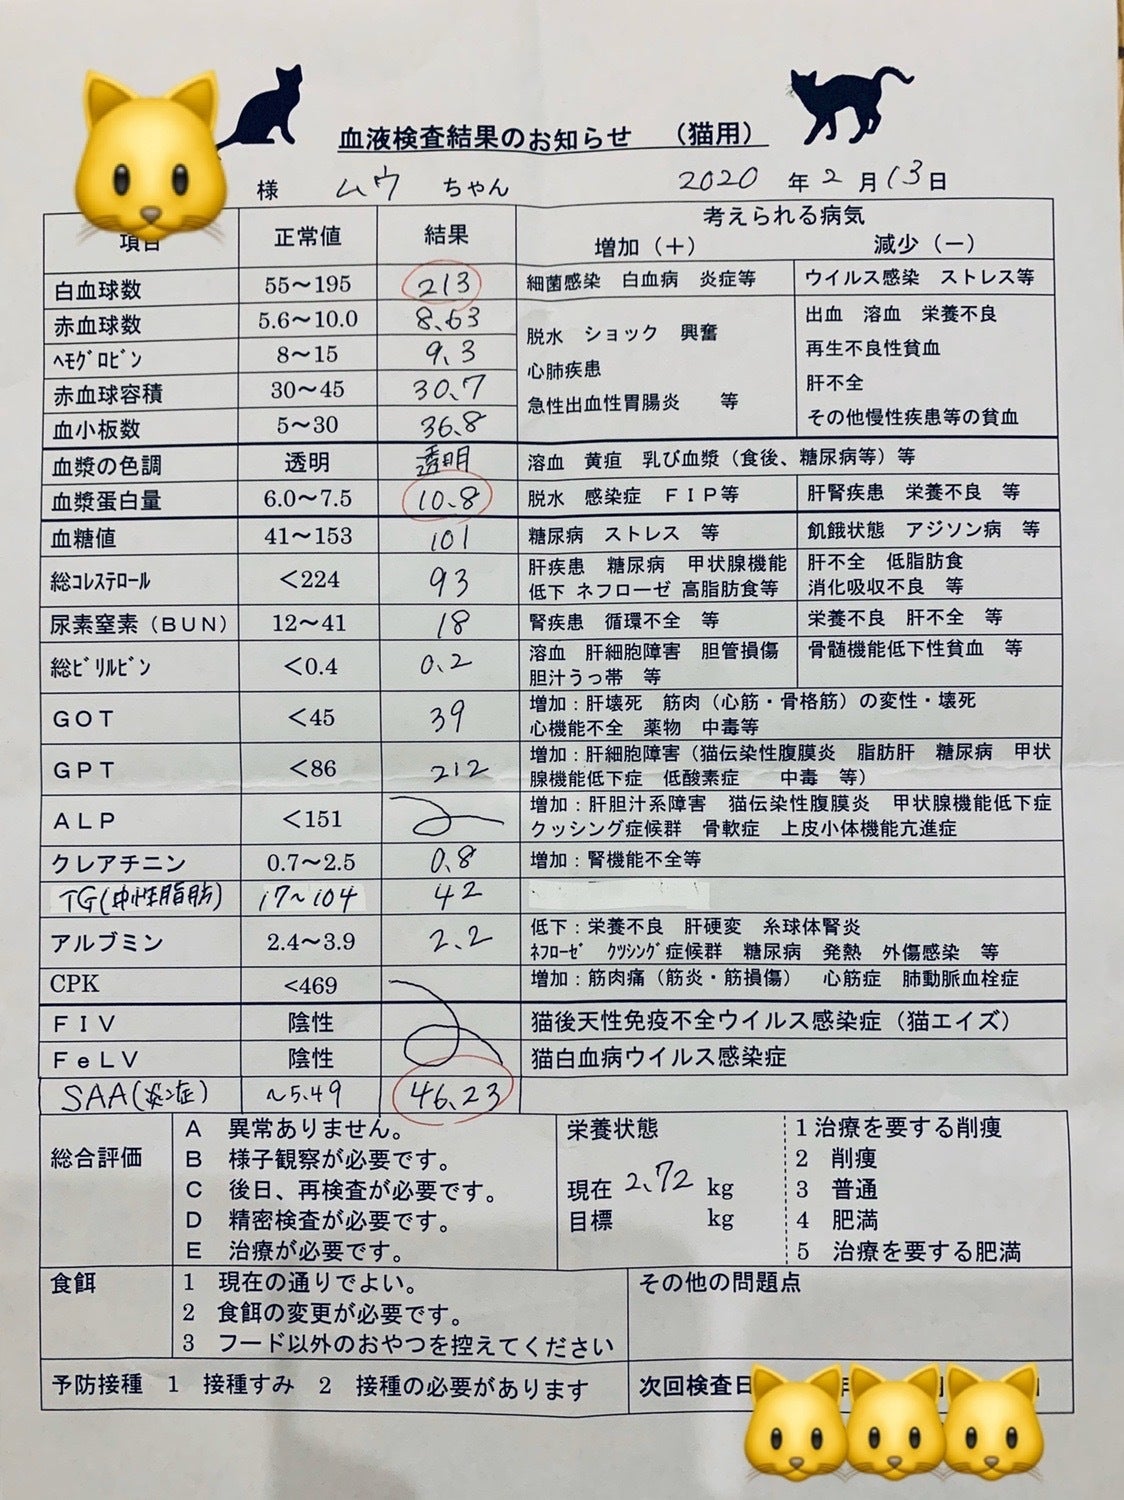 血液検査結果のお知らせ （猫用）
様 ムウ ちゃん 2020 年 2 月 13 日
項目 正常値 結果 考えられる病気
増加（＋） 減少（－）
白血球数 55～195 213 細菌感染 白血病 炎症等 ウイルス感染 ストレス等
赤血球数 5.6～10.0 8.63 脱水 ショック 興奮 出血 溶血 栄養不良
ﾍﾓｸﾞﾛﾋﾞﾝ 8～15 9.3 心肺疾患 再生不良性貧血
赤血球容積 30～45 30.7 急性出血性胃腸炎 等 肝不全
血小板数 5～30 36.8 その他慢性疾患等の貧血
血漿の色調 透明 透明 溶血 黄疸 乳び血漿（食後、糖尿病等）等
血漿蛋白量 6.0～7.5 10.8 脱水 感染症 ＦＩＰ等 肝腎疾患 栄養不良 等
血糖値 41～153 101 糖尿病 ストレス 等 飢餓状態 アジソン病 等
総ｺﾚｽﾃﾛｰﾙ ＜224 93 肝疾患 糖尿病 甲状腺機能 肝不全 低脂肪食
低下 ネフローゼ 高脂肪食等 消化吸収不良 等
尿素窒素（ＢＵＮ） 12～41 18 腎疾患 循環不全 等 栄養不良 肝不全 等
総ﾋﾞﾘﾙﾋﾞﾝ ＜0.4 0.2 溶血 肝細胞障害 胆管損傷 骨髄機能低下性貧血 等
胆汁うっ帯 等
ＧＯＴ ＜45 39 増加：肝壊死 筋肉（心筋・骨格筋）の変性・壊死
心機能不全 薬物 中毒等
ＧＰＴ ＜86 212 増加：肝細胞障害（猫伝染性腹膜炎 脂肪肝 糖尿病 甲状
腺機能低下症 低酸素症 中毒 等）
ＡＬＰ ＜151 増加：肝胆汁系障害 猫伝染性腹膜炎 甲状腺機能低下症
クッシング症候群 骨軟症 上皮小体機能亢進症
クレアチニン 0.7～2.5 0.8 増加：腎機能不全等
TG(中性脂肪) 17～104 42
アルブミン 2.4～3.9 2.2 低下：栄養不良 肝硬変 糸球体腎炎
ﾈﾌﾛｰｾﾞ ｸﾂｼﾝｸﾞ症候群 糖尿病 発熱 外傷感染 等
CPK <469 増加：筋肉痛（筋炎・筋損傷） 心筋症 肺動脈血栓症
ＦＩＶ 陰性 猫後天性免疫不全ウイルス感染症（猫エイズ）
ＦｅＬＶ 陰性 猫白血病ウイルス感染症
SAA(炎症) ～5.49 46.23
総合評価
A 異常ありません。
B 様子観察が必要です。
C 後日、再検査が必要です。
D 精密検査が必要です。
E 治療が必要です。
栄養状態
現在 2.72 kg
目標 kg
1 治療を要する削痩
2 削痩
3 普通
4 肥満
5 治療を要する肥満
食餌
1 現在の通りでよい。
2 食餌の変更が必要です。
3 フード以外のおやつを控えてください
その他の問題点
予防接種 1 接種すみ 2 接種の必要があります
次回検査日